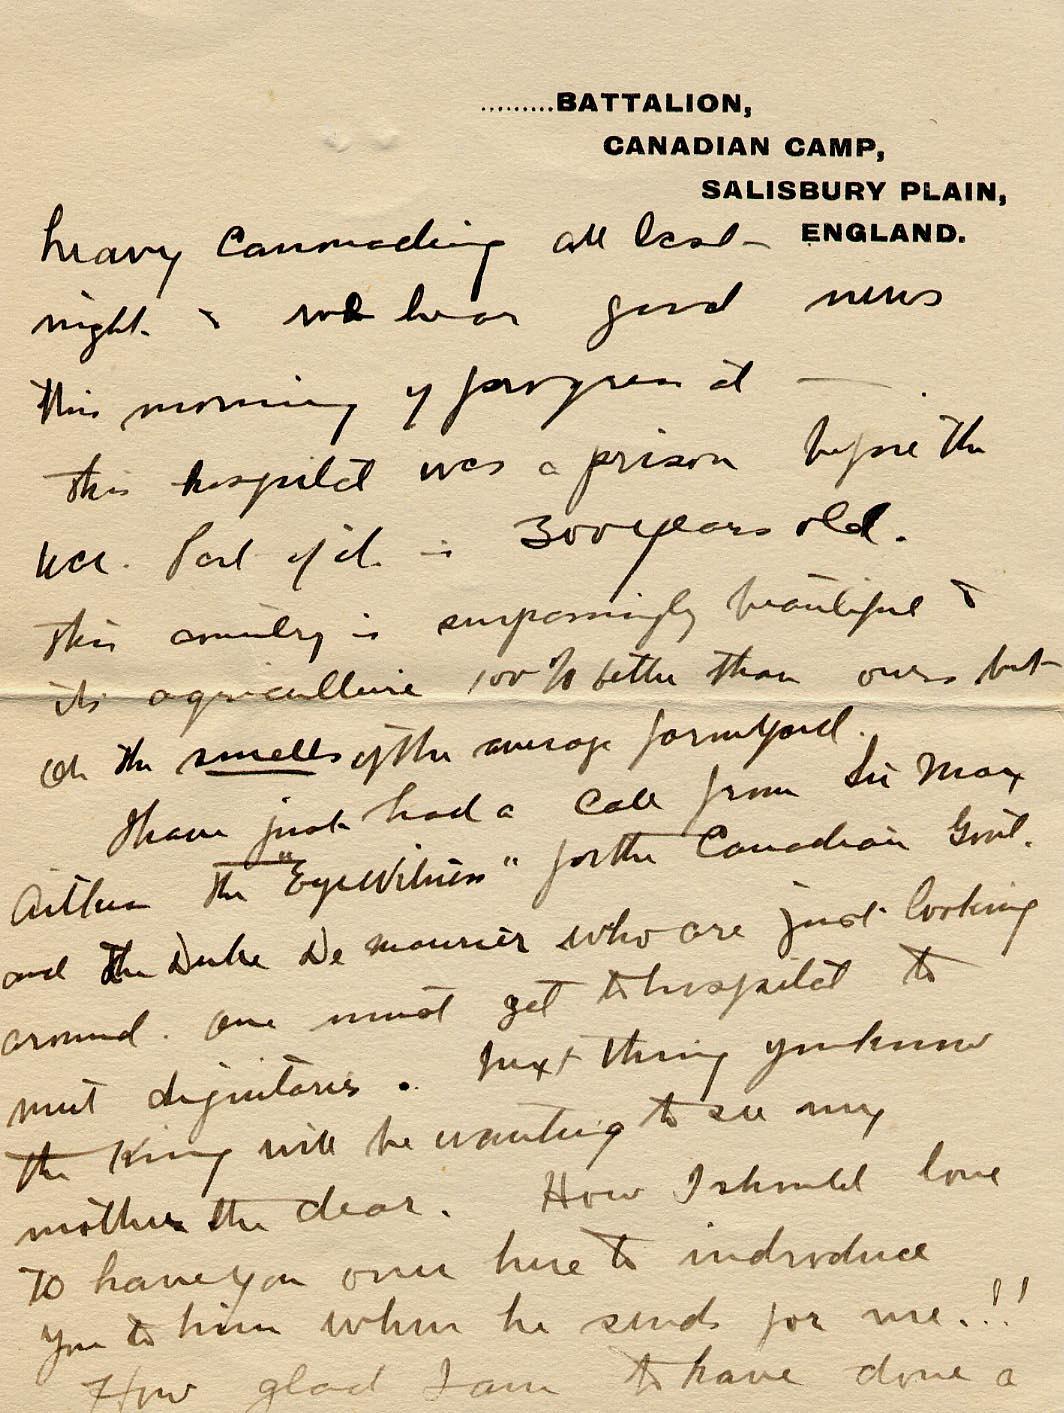 .........BATTALION,
CANADIAN CAMP,
SALISBURY PLAIN,
ENGLAND.
heavy cannonading all last
night & we hear good news
this morning of progress at —.
This hospital was a prison before the
war. Part of it is 300 years old.
This country is surpassingly beautiful &
its agriculture 100% better than ours but
Oh the smells of the average farmyard.
I have just had a call from Sir Max
Aitken the "Eye Witness" for the Canadian Govt.
and the Duke De who are just looking
around. One must get to hospital to
meet dignitaries. Next thing you know
the King will be wanting to see my
mother the dear. How I should love
to have you over here to indroduce
you to him when he sends for me.!!
How glad I am to have done a